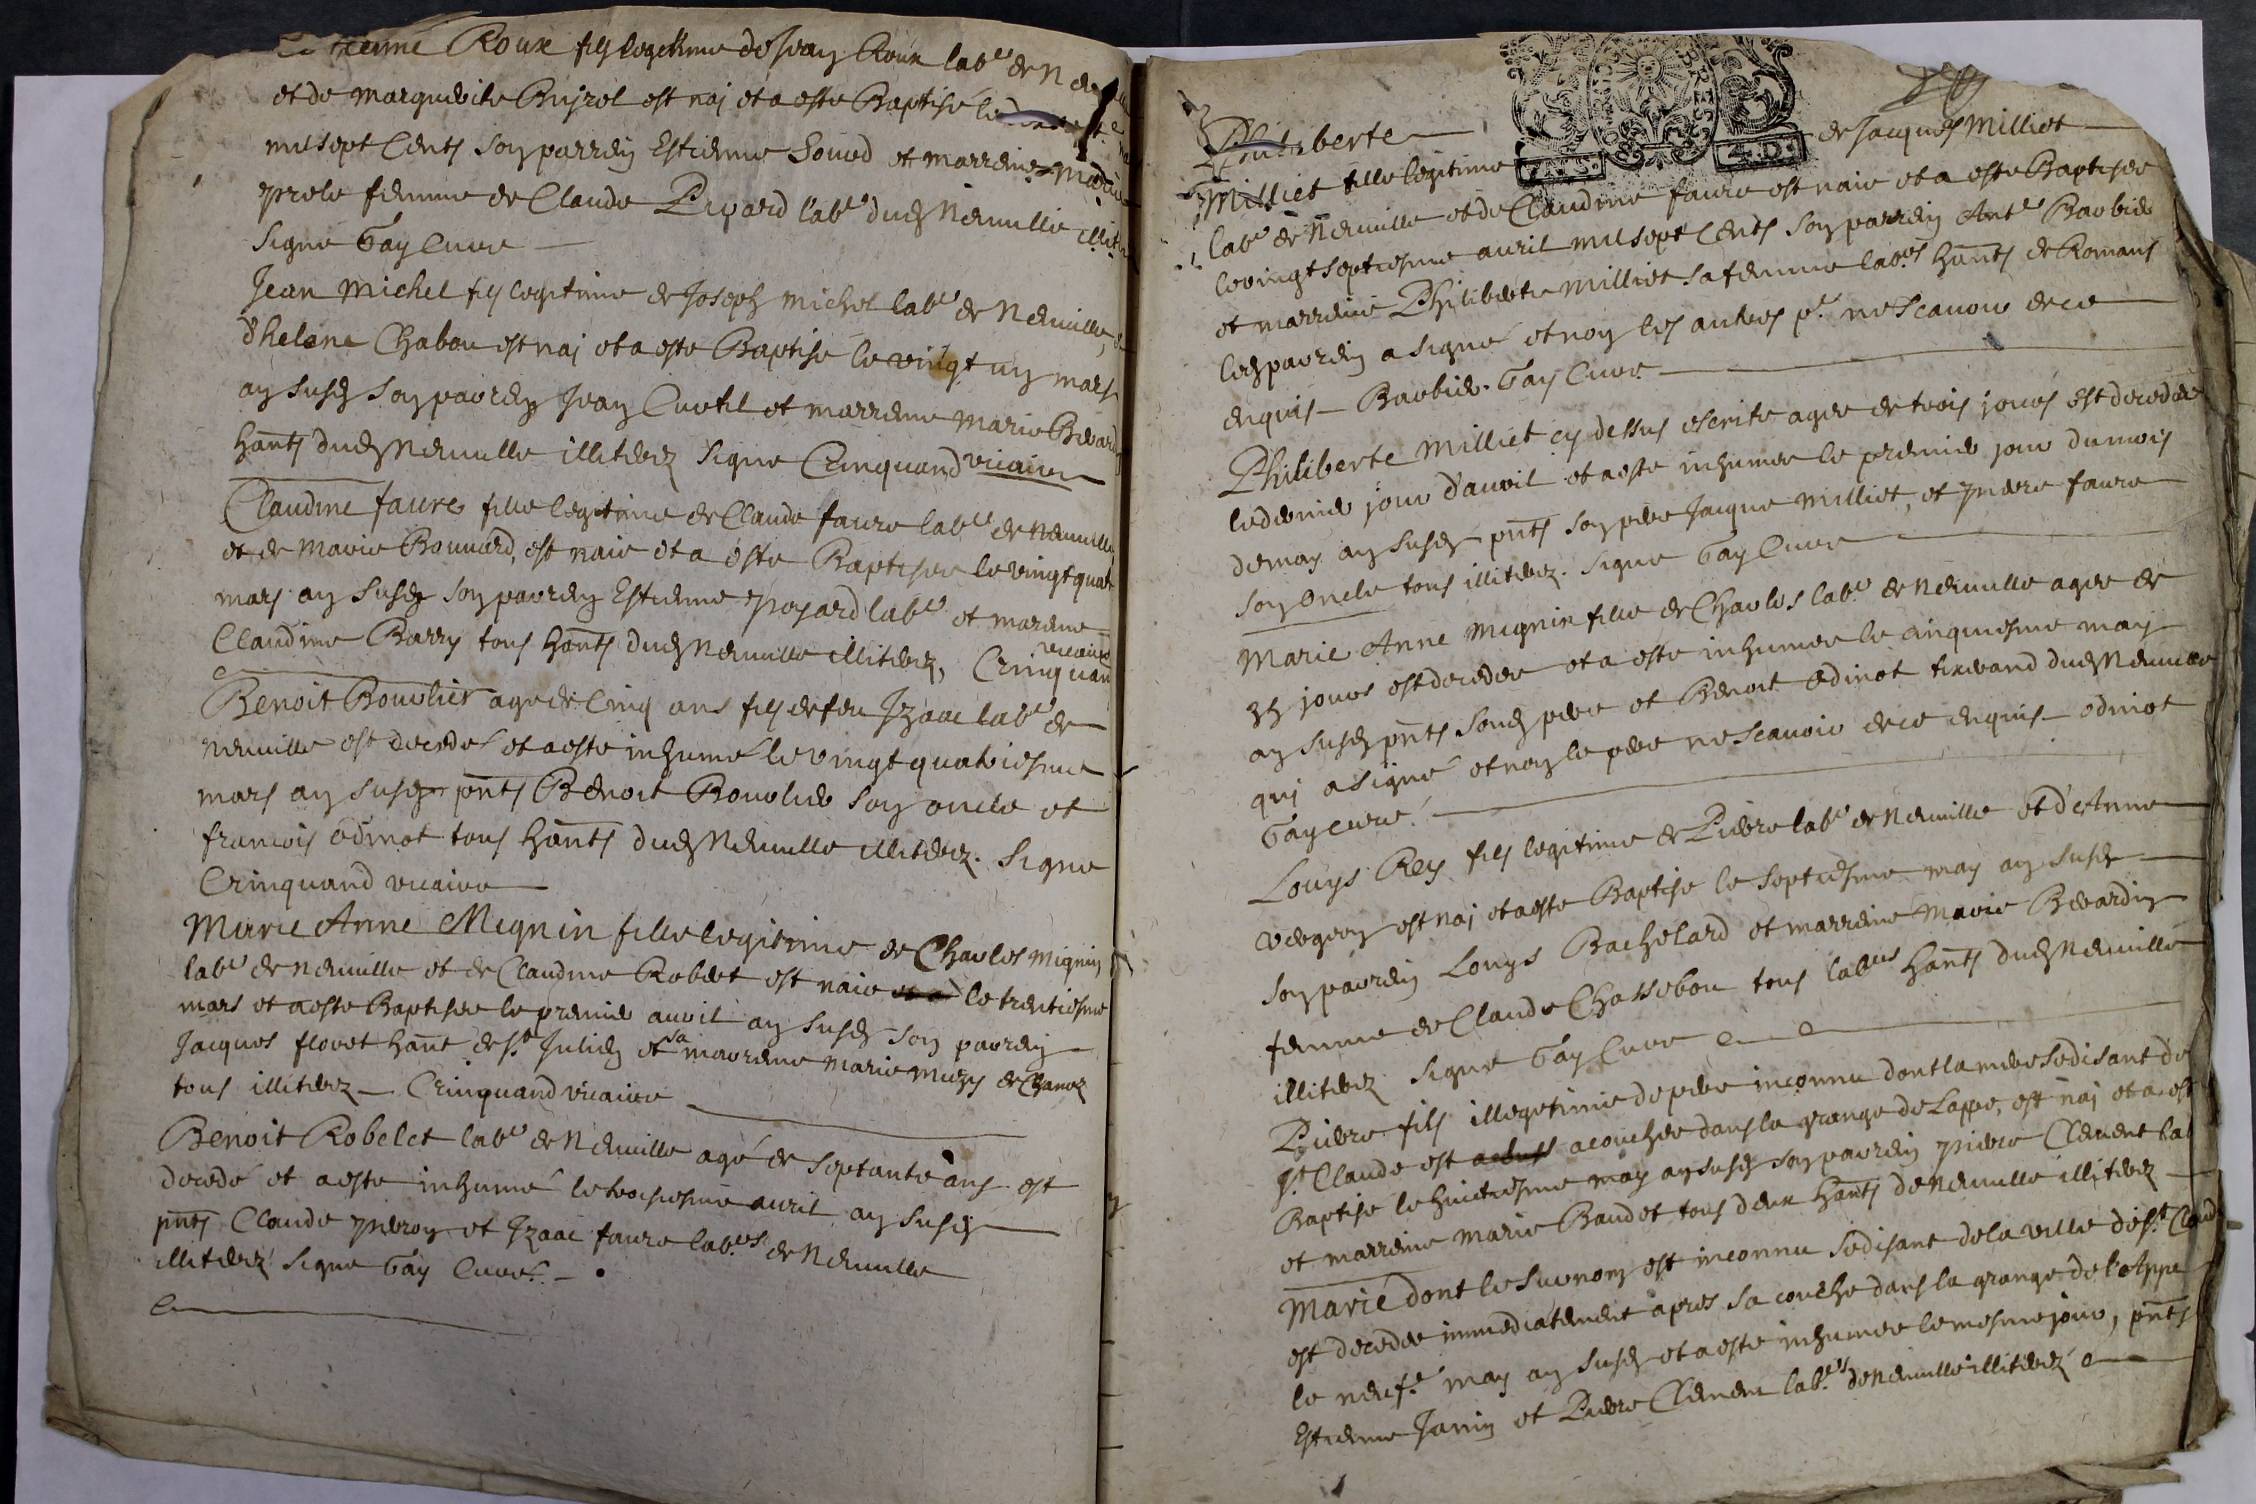 Roux fils legetime de Jean Roux labr de
et de marguerite est naj et a esté Baptisé le
mil sept Cents son parrein Estienne et marreine Marie
femme de Claude labr dud Neuuille
signé Gay Curé
Jean Michel fils legitime de Joseph Michel labr de Neuuille,
d'helene Chabou est naj et a esté Baptisé le vingt un mars
an susd son parrein Jean Curtil et marreine Marie
hants dud Neuuille illiterez signé Crinquand vicaire
Claudine faure fille legitime de Claude faure labr de neuuille
et de Marie Bouuard, est naie et a esté Baptisee le vingt quat
mars an susd son parrein Estienne Poyard labr et mareine
Claudine Barry tous hants dud Neuuille illiterez, Crinquand
vicaire
Benoit Bouvlier agé de Cinq ans fils de feu Izaac labr de
neuuille est decedé et a esté inhumé le vingt quatriesme
mars an susd pnts Benoit son oncle et
francois odinot tous hants dud Neuuille illiterez. Signé
Crinquand vicaire
Marie Anne Mignin fille legitime de Charles mignin
labr de neuuille et de Claudine Robert est naie et a le trentiesme
mars et a esté Baptisee le premier auril an susd son parrein
Jacques floret hant de st Julien et sa marreine marie de Chanoz
tous illiterez Crinquand vicaire
Benoit Robelet labr de Neuuille agé de septante ans est
decedé et a esté inhumé le troisiesme auril an susd
pnts Claude peron et Izaac faure labrs de Neuuille
illiterez signé Gay Curé
Philiberte
Milliet fille legitime de Jacques Milliet
labr de Neuuille et de Claudine faure est naie et a esté Baptisee
le vingt septiesme auril mil sept Cents son parrein Antе Barbier
et marreine Philiberte Milliet sa femme labrs hants de Romans
led parrein a signé et non les autres pr ne scauoir de ce
enquis Barbier. Gay Curé
Philiberte Milliet cy dessus escrite agee de trois jours est decedee
le dernier jour d'auril et a esté inhumee le premier jour du mois
de may an susd pnts son pere Jacque Milliet, et pierre faure
son oncle tous illiterez. signé Gay Curé
Marie Anne mignin fille de Charles labr de Neuuille agee de
35 jours est decedee et a esté inhumee le cinquiesme may
an susd pnts sond pere et Benoit odinot tixerand dud Neuuille
qui a signé et non le pere ne scauoir de ce enquis odinot
Gay curé.
Louys Rey fils legitime de Pierre labr de Neuuille et d'Anne
est naj et a esté Baptisé le septiesme may an susd
son parrein Louys Bachelard et marreine Marie Berardin
femme de Claude Chassebou tous labrs hants dud Neuuille
illiterez signé Gay Curé
Pierre fils illegetime de pere inconnu dont la mere se disant de
St Claude est acouchee dans la grange de Lappe, est naj et a esté
Baptisé le huictiesme may an susd son parrein pierre Clement lab
et marreine Marie Baudet tous deux hants de neuuille illiterez
Marie dont le surnom est inconnu se disant de la ville de St Claude
est decedee immediatement apres sa couche dans la grange de l'Appe
le neufe may an susd et a esté inhumee le mesme jour, pnts
Estienne Janin et Pierre Clement labrs de neuuille illiterez